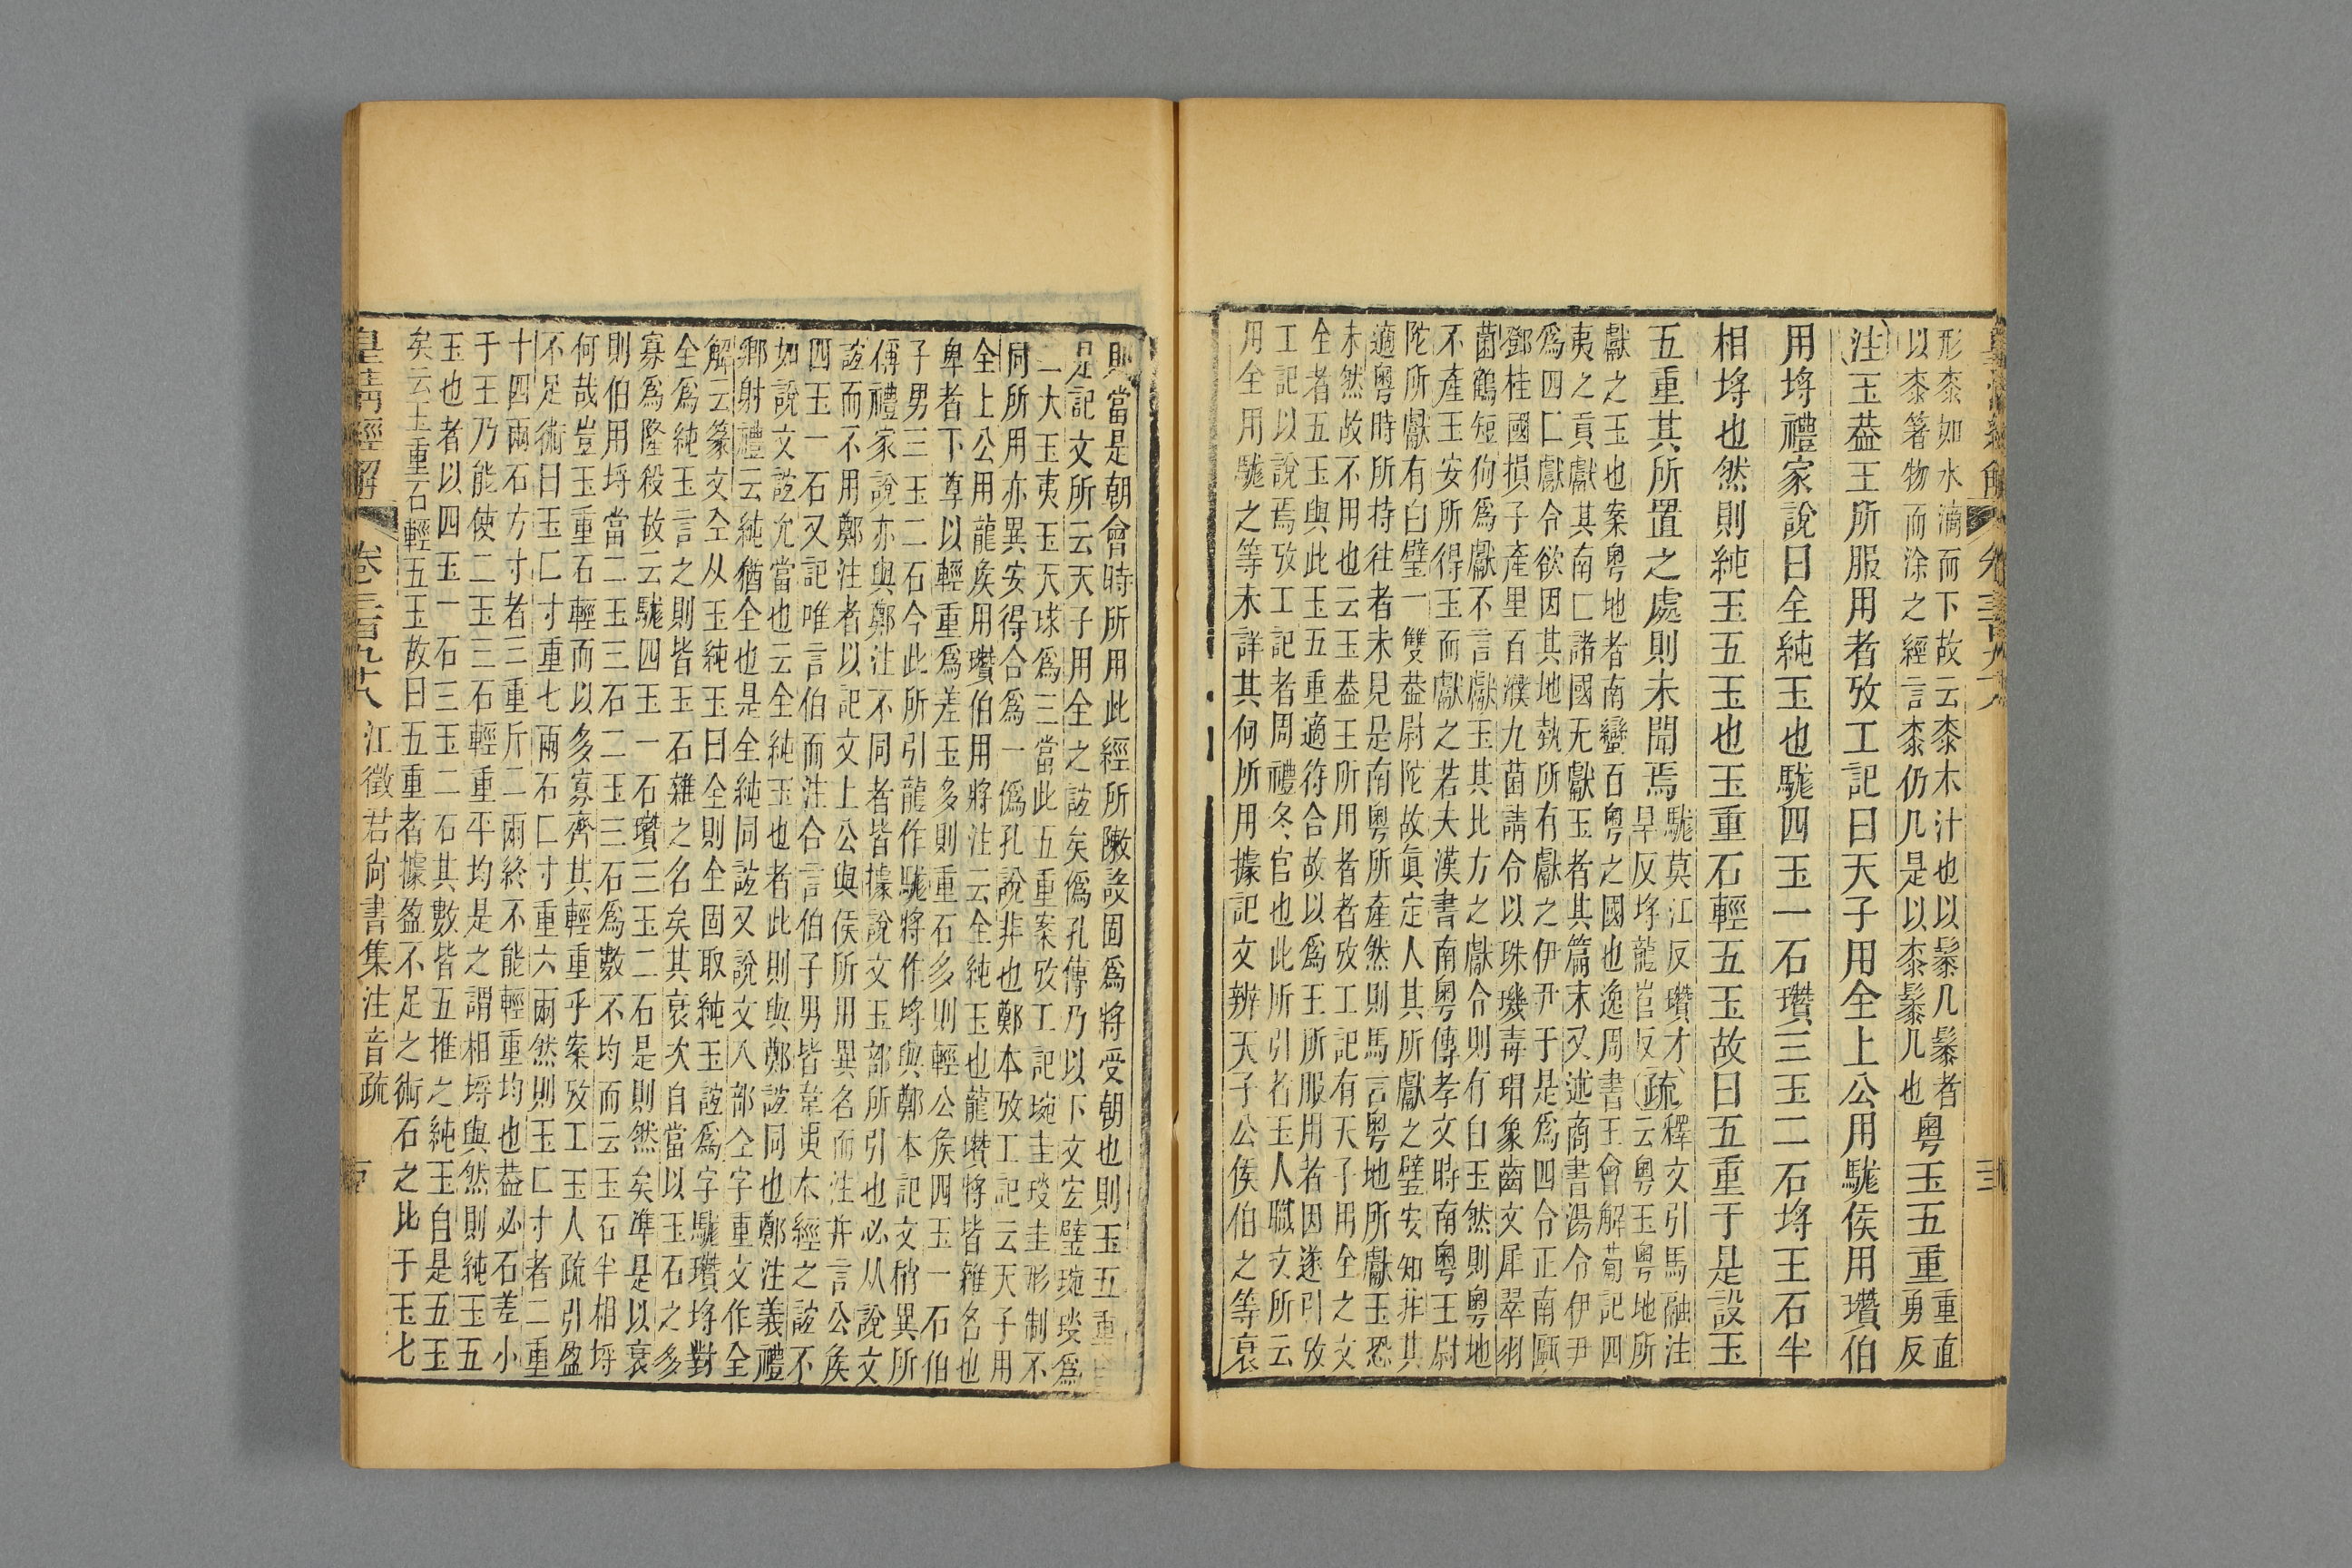 形桼如水滴而下故云桼木汁也以髹几髹者
以桼箸物而涂之經言桼仍几是以桼髹几也
粤玉五重
重直
勇反
注玉葢王所服用者攷工記曰天子用全上公用駹侯用瓚伯
用埓禮家說曰全純玉也駹四玉一石瓚三玉二石埓玉石半
相埓也然則純玉五玉也玉重石輕五玉故曰五重于是設玉
五重其所置之處則未聞焉
駹莫江反瓚才
旱反埓龍官反
疏
釋文引馬融注
云粤玉粤地所
獻之玉也案粤地者南蠻百粤之國也逸周書王會解萄記四
夷之貢獻其南匚諸國无獻玉者其篇末又述商書湯令伊尹
爲四匚獻令欲因其地埶所有獻之伊尹于是爲四令正南甌
鄧桂國損子產里百濮九菌請令以珠璣毒瑁象齒文犀翠羽
菌鶴短狗爲獻不言獻玉其比方之獻令則有白玉然則粤地
不產玉安所得玉而獻之若夫漢書南粤傳孝文時南粤王尉
陀所獻有白璧一雙葢尉陀故眞定人其所獻之璧安知非其
適粤時所持往者未見是南粤所產然則馬言粤地所獻玉恐
未然故不用也云玉葢王所用者者攷工記有天子用全之文
全者五玉與此玉五重適符合故以爲王所服用者因遂引攷
工記以說焉攷工記者周禮冬官也此所引者玉人職文所云
用全用駹之等未詳其何所用據記文辨天子公侯伯之等衰
則當是朝會時所用此經所陳設固爲將受朝也則玉五重
足記文所云天子用全之誼矣僞孔傳乃以下文宏璧琬琰爲
二大玉夷玉天球爲三當此五重案攷工記琬圭琰圭形制不
同所用亦異安得合爲一僞孔說非也鄭本攷工記云天子用
全上公用龍矦用瓚伯用將注云全純玉也龍瓚將皆雜名也
卑者下尊以輕重爲差玉多則重石多則輕公矦四玉一石伯
子男三玉二石今此所引龍作駹將作埓與鄭本記文稍異所
傳禮家說亦與鄭注不同者皆據說文玉部所引也必从說文
誼而不用鄭注者以記文上公與侯所用異名而注并言公矦
四玉一石又記唯言伯而注合言伯子男皆韋夷本經之誼不
如說文誼允當也云全純玉也者此則與鄭誼同也鄭注義禮
鄉射禮云純猶全也是全純同誼又說文入部仝字重文作全
解云篆文仝从玉純玉曰全則全固取純玉誼爲字駹瓚埓對
全爲純玉言之則皆玉石雜之名矣其衰次自當以玉石之多
寡爲隆殺故云駹四玉一石瓚三玉二石是則然矣準是以衰
則伯用埓當二玉三石二玉三石爲數不均而云玉石半相埓
何哉豈玉重石輕而以多寡齊其輕重乎案攷工玉人疏引盈
不足術曰玉匚寸重七兩石匚寸重六兩然則玉匚寸者二重
十四兩石方寸者三重斤二兩終不能輕重均也葢必石差小
于玉乃能使二玉三石輕重平均是之謂相埓與然則純玉五
玉也者以四玉一石三玉二石其數皆五推之純玉自是五玉
矣云玉重石輕五玉故曰五重者據盈不足之術石之比于玉七
皇淸經解
卷三百九十八
江徵君尙書集注音疏